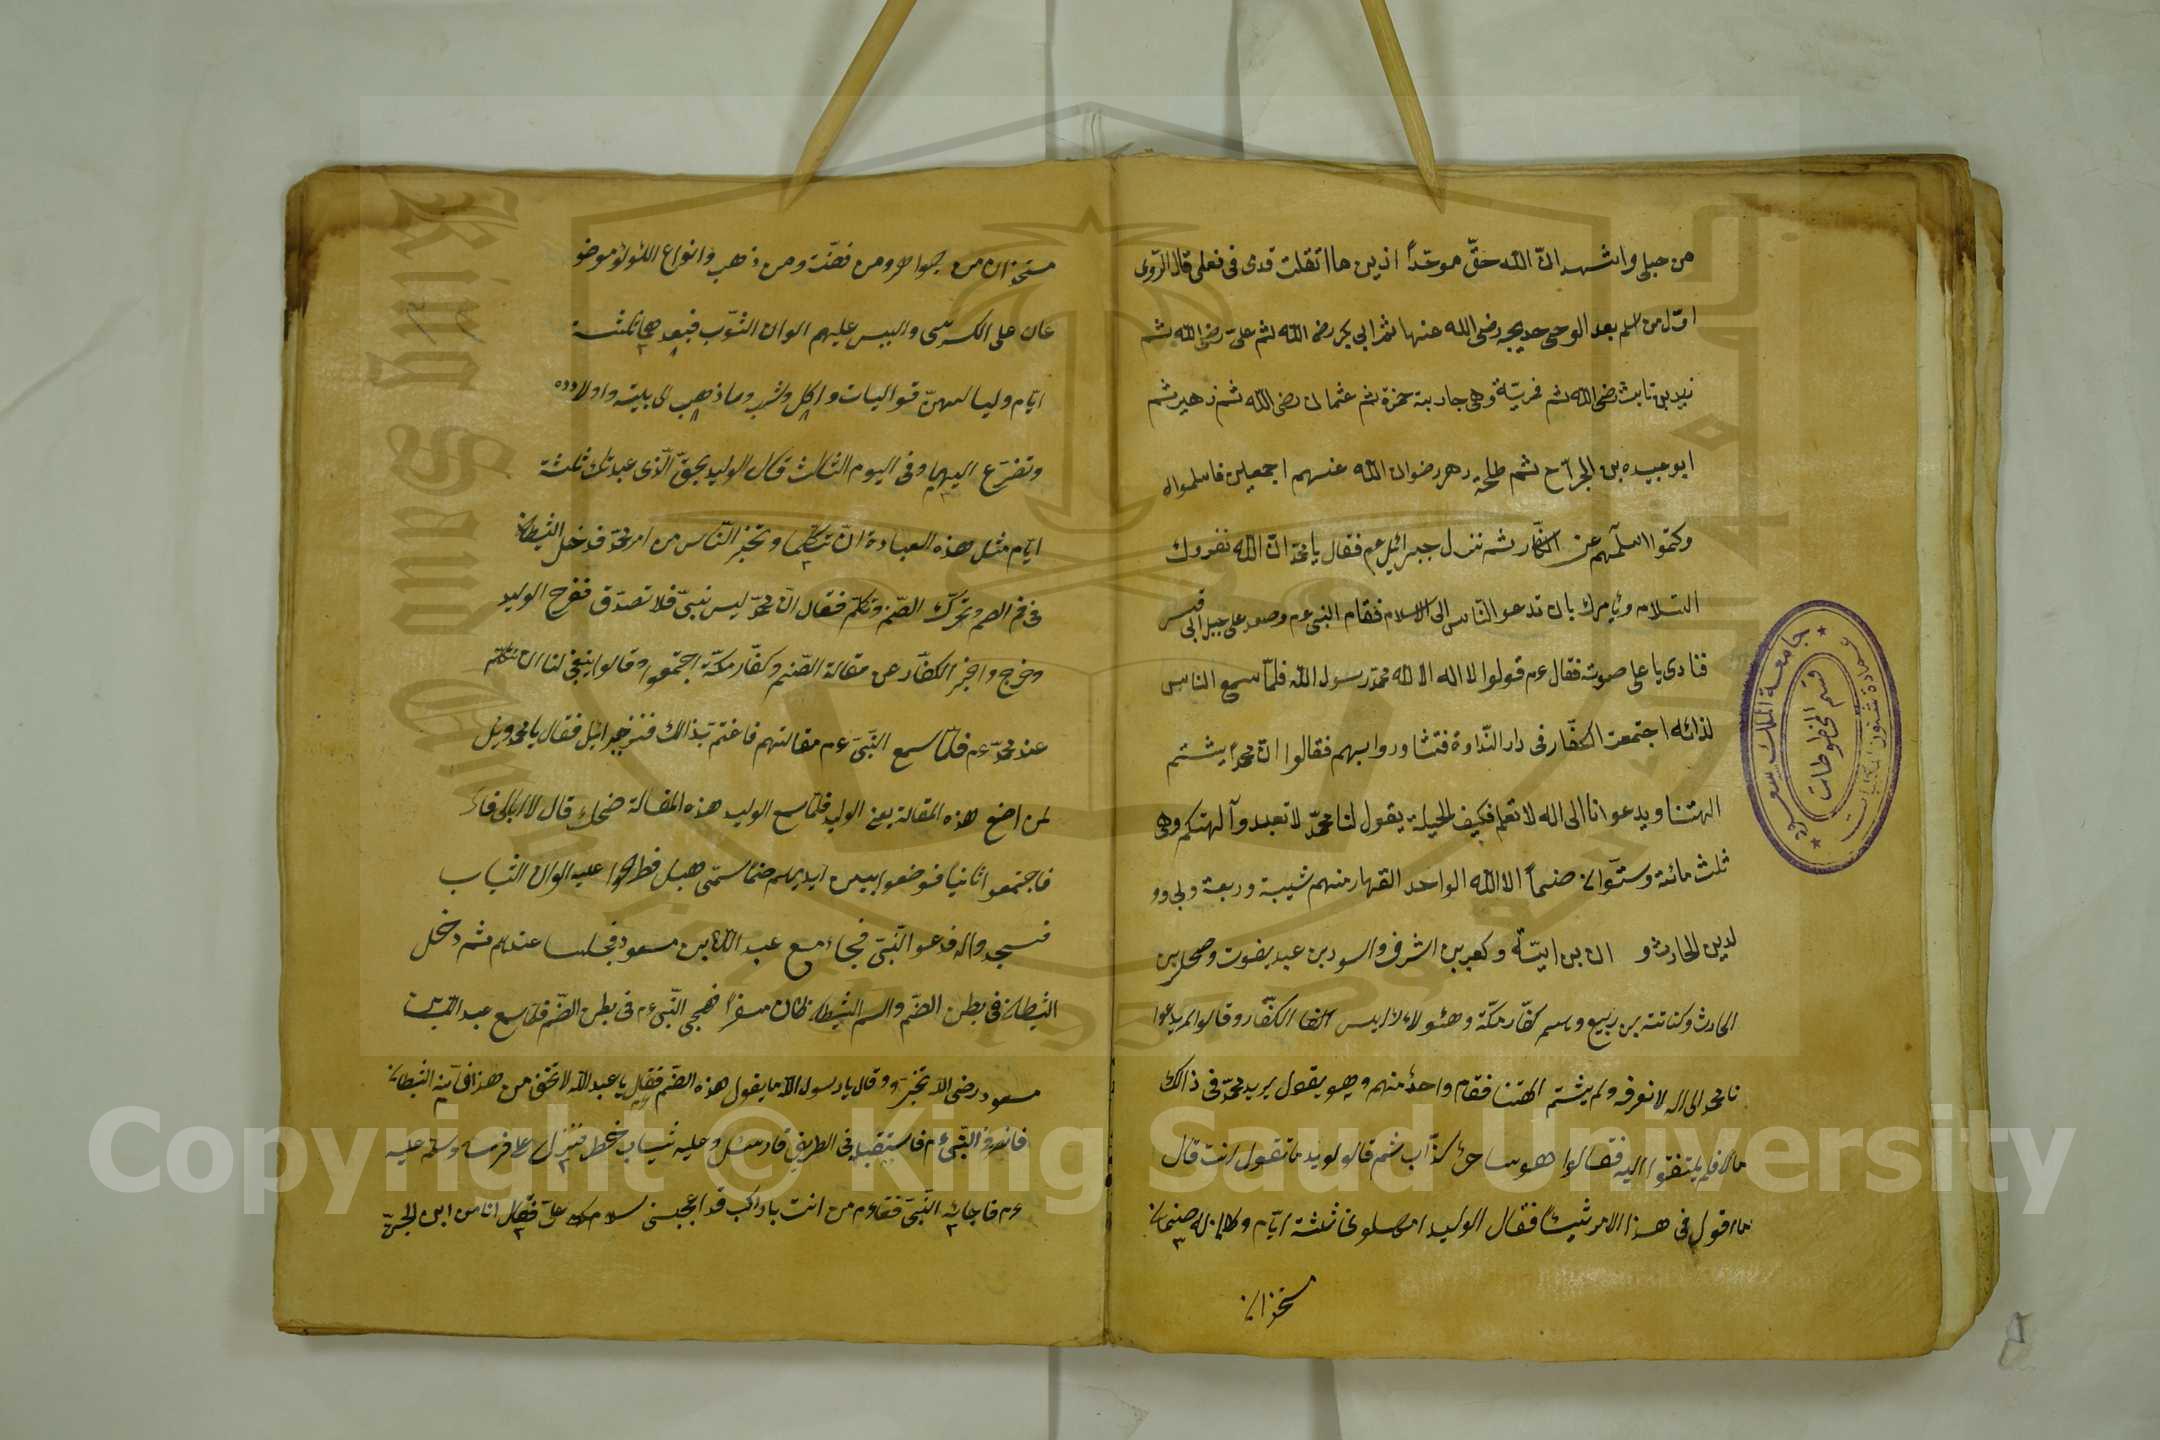 من جبلى واشهد انّ الله حقّ موحّداً اذ بين ها انتقلت قدمى فى نعلى قال الرّوى
اوّل من اسلم بعد الوحى خديجه رضى الله عنها ثمّ ابى بكر رضى الله ثم علىّ رضى الله ثم
زيد بن ثابت رضى الله ثم وهى جاربة حمزة ثم عثمان رضى الله ثم زهير ثم
ابو عبيده بن الجرّاح ثم طلحة رضوان الله عنهم اجمعين فاسلموا
وكتموا اسلامهم عن الكفّار ثم نزل جبرائيل عم فقال يا محمّد انّ الله نفروك
السّلام ويأمرك بان تدعو النّاس الى الاسلام فقام النبى عم وصعد على جبل ابى قبيس
فنادى يا على صوته فقال عم قولوا لا اله الا الله محمّد رسول الله فلمّا سمع الناس
لذائه اجتمعت الكفّار فى دار النّداوة فتشاوروا بهم فقالوا انّ محمّداً يشتم
الهتنا ويدعوانا الى اله لا نعلم فكيف الحيلة يقول لنا محمّد لا تعبدوا آلهتكم وهى
ثلث مائة وستّوان صنماً الا الله الواحد القهار منهم شيبة وربعة ولى وو
لدين الحارث و ان بن اميّة وكعب بن اشرف واسود بن عبد يغوث وصحل بن
الحادث وكنانة بن ربيع وسم كفّار مكّة وهئولاء الكفّار وقالوا لم يدعوا
نا محمّد الى اله لا نعرفه ولم يشتم الهتنا فقام واحد منهم وهو يقول يريد محمّد فى ذالك
مالا فلم يلتفتوا اليه فقالوا هو ساحر كذّاب ثم قالو لويد ما تقول انت قال
ما اقول فى هذا الامر شيئاً فقال الوليد امهلونى ثلثة ايّام وكان له صنمان
متخذان
متخذان من جواهر ومن فضّة ومن ذهب وانواع اللؤلؤ موضو
عان على الكرسّى والبس عليهم الوان الثّوب فبعد هما ثلثة
ايّام وليا لهنّ قتواليات وما اكل وشرب وما ذهب الى بيته واولاده
وتضرّع اليهما وفى اليوم الثالث قال الوليد بحقّ الّذى عبدتك ثلثة
ايّام مثل هذه العبادة ان تتكلما وتخبر النّاس من امر محمّد فدخل الشّيطان
فى فم الصم وتحرّك الصّنم وتكلّم فقال انّ محمّد ليس نبىّ فلا تصدّق ففرح الوليد
وخرج واخبر الكفّار عن مقالة الصّنم وكفّار مكّة اجتمعوا وقالوا ينبغى لنا ان نتكلّم
عند محمّد عم فلمّا سمع النّبى عم مقالتهم فاغتمّ بذالك فنزل جبرائيل فقال يا محمّد ويل
لمن اضع هذه المقالة يعنى الوليد فلمّا سمع الوليد هذه المقالة ضحك قال لا ابالى
فاجتمعوا ثانياً فوضعوا بين ايديهم صنماً سمّى هبل فطرحوا عليه الوان الثياب
فسجدوا له فدعوا النّبىّ فجاء مع عبد الله بن مسعود فجلسا عندهم ثم دخل
الشّيطان فى بطن الصّنم واسم الشّيطان كان مسفراً فهجى النّبى عم فى بطن الصّنم فلمّا سمع عبد الله بن
مسعود رضى الله تحيّر وقال يا رسول الله ما يقول هذه الصّنم فقال يا عبد الله لا تخف من هذا الشيطان
فانصرف النّبى عم فاستقبل فى الطريق فارسل وعليه ثياب خضر فنزل عن فرسه وسلم عليه
عم فاجابه النّبى فقال عم من انت يا راكب قد اعجبنى سلامك علىّ فقال انا من ابن الجنّ
جامعة الملك سعود
عمادة شئون المكتبات
قسم المخطوطات
King Saud University
1957
Copyright © King Saud University